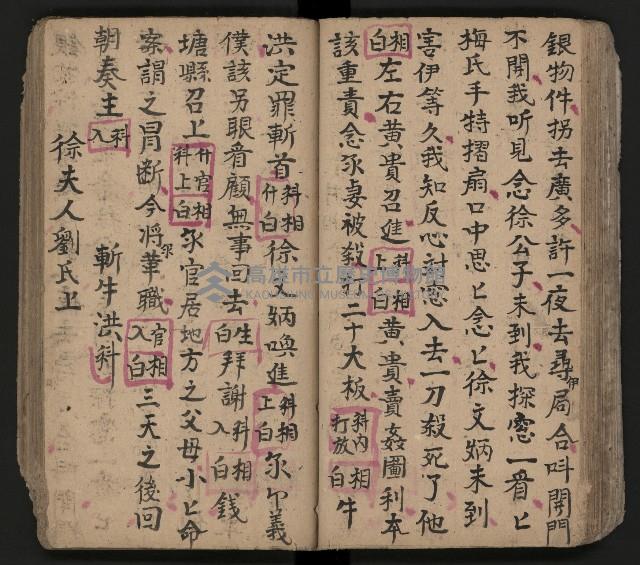 銀物件拐去廣多許一夜去尋伊局合呌開門
不開我听見念徐公子未到我探窓一看匕
梅氏手特摺扇口中思匕念匕徐文炳未到
害伊等久我知反心討窓入去一刀殺死了他
相白左右黄貴召進科上相白黄貴賣姦圖利本
該重責念尔妻被殺打二十大板科內打放相白牛
洪定罪斬首科什相白徐文炳喚進科上相白尔尔義
僕該另眼看顧無事回去生白拜謝科入相白錢
塘縣召上什官科上相白尔官居地方之父母小匕命
案謂之胃断今將尔革職官入相白三天之後回
朝奏主科入 斬牛洪科
徐夫人劉氏上
高雄市立歷史博物館
KAOHSIUNG MUSEUM OF HISTORY